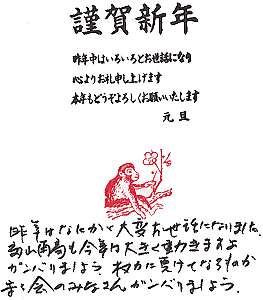 謹賀新年
昨年中はいろいろとお世話になり
心よりお礼申し上げます
本年もどうぞよろしくお願いいたします
元旦
昨年はなにかと大変お世話になりました。
高山西局も今年は大きく動きますよ
ガンバリましょう 権力に負けてなるものか
まも会のみなさんガンバりましょう。